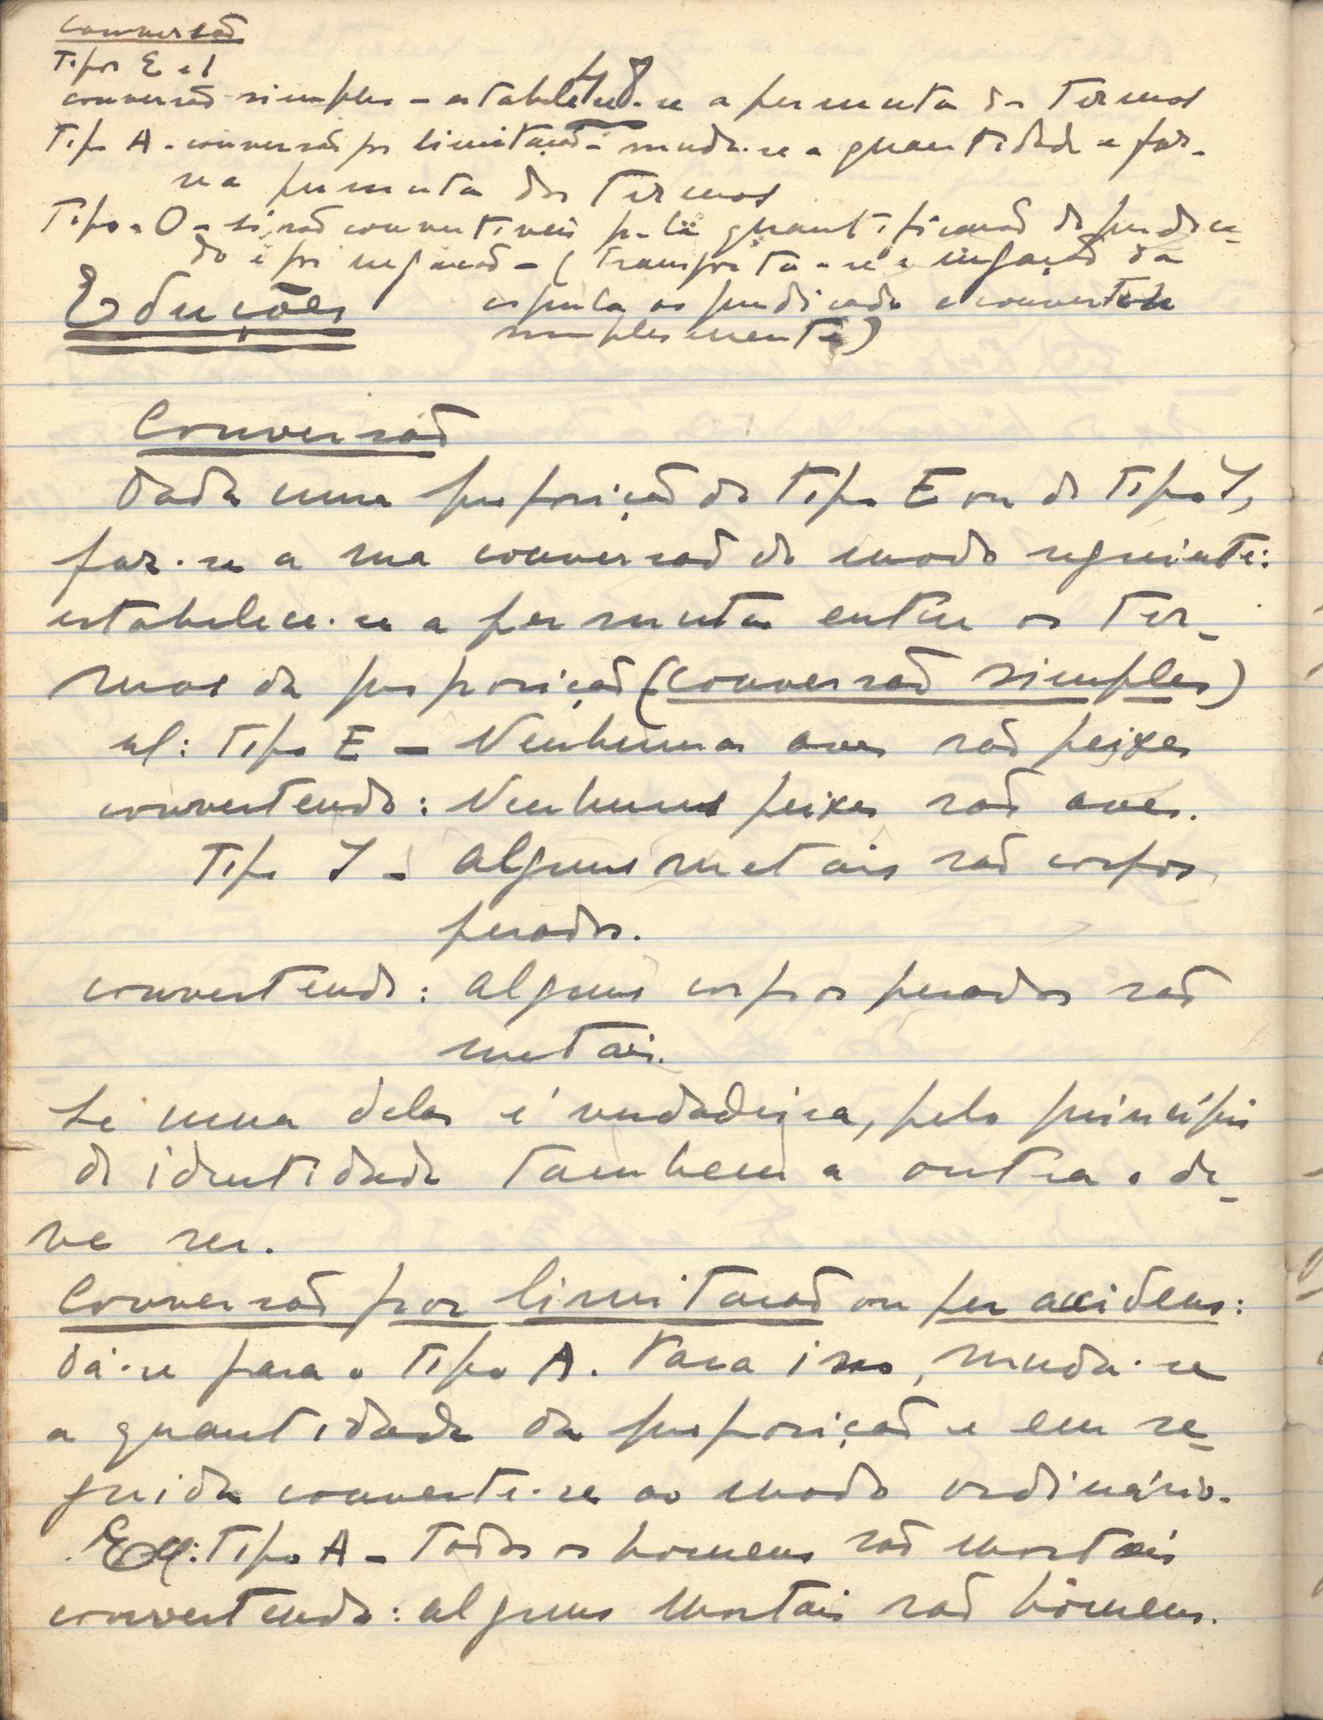 Conversão
Tipos E e I
48
conversão simples - estabelece-se a permuta dos termos
Tipo A - conversão por limitação - muda-se a quantidade e faz-
se a permuta dos termos
Tipo - O - si, são convertíveis pela quantificação do predica-
do e por negação - (transporta-se a negação da
cópula ao predicado e converte-se
simplesmente)
Eduções
Conversão
Dada uma proposição do tipo E ou do tipo I,
faz-se a sua conversão do modo seguinte:
estabelece-se a permuta entre os ter-
mos da proposição (conversão simples)
ex: Tipo E - Nenhumas aves são peixes
convertendo: Nenhuns peixes são aves.
Tipo I - Alguns metais são corpos
pesados.
convertendo: Alguns corpos pesados são
metais.
Se uma delas é verdadeira, pelo princípio
de identidade tambem a outra o de-
ve ser.
Conversão por limitação ou per accidens:
dá-se para o tipo A. Para isso, muda-se
a quantidade da proposição e em se-
guida converte-se ao modo ordinário.
Ex: Tipo A - Todos os homens são mortais
convertendo: alguns mortais são homens.